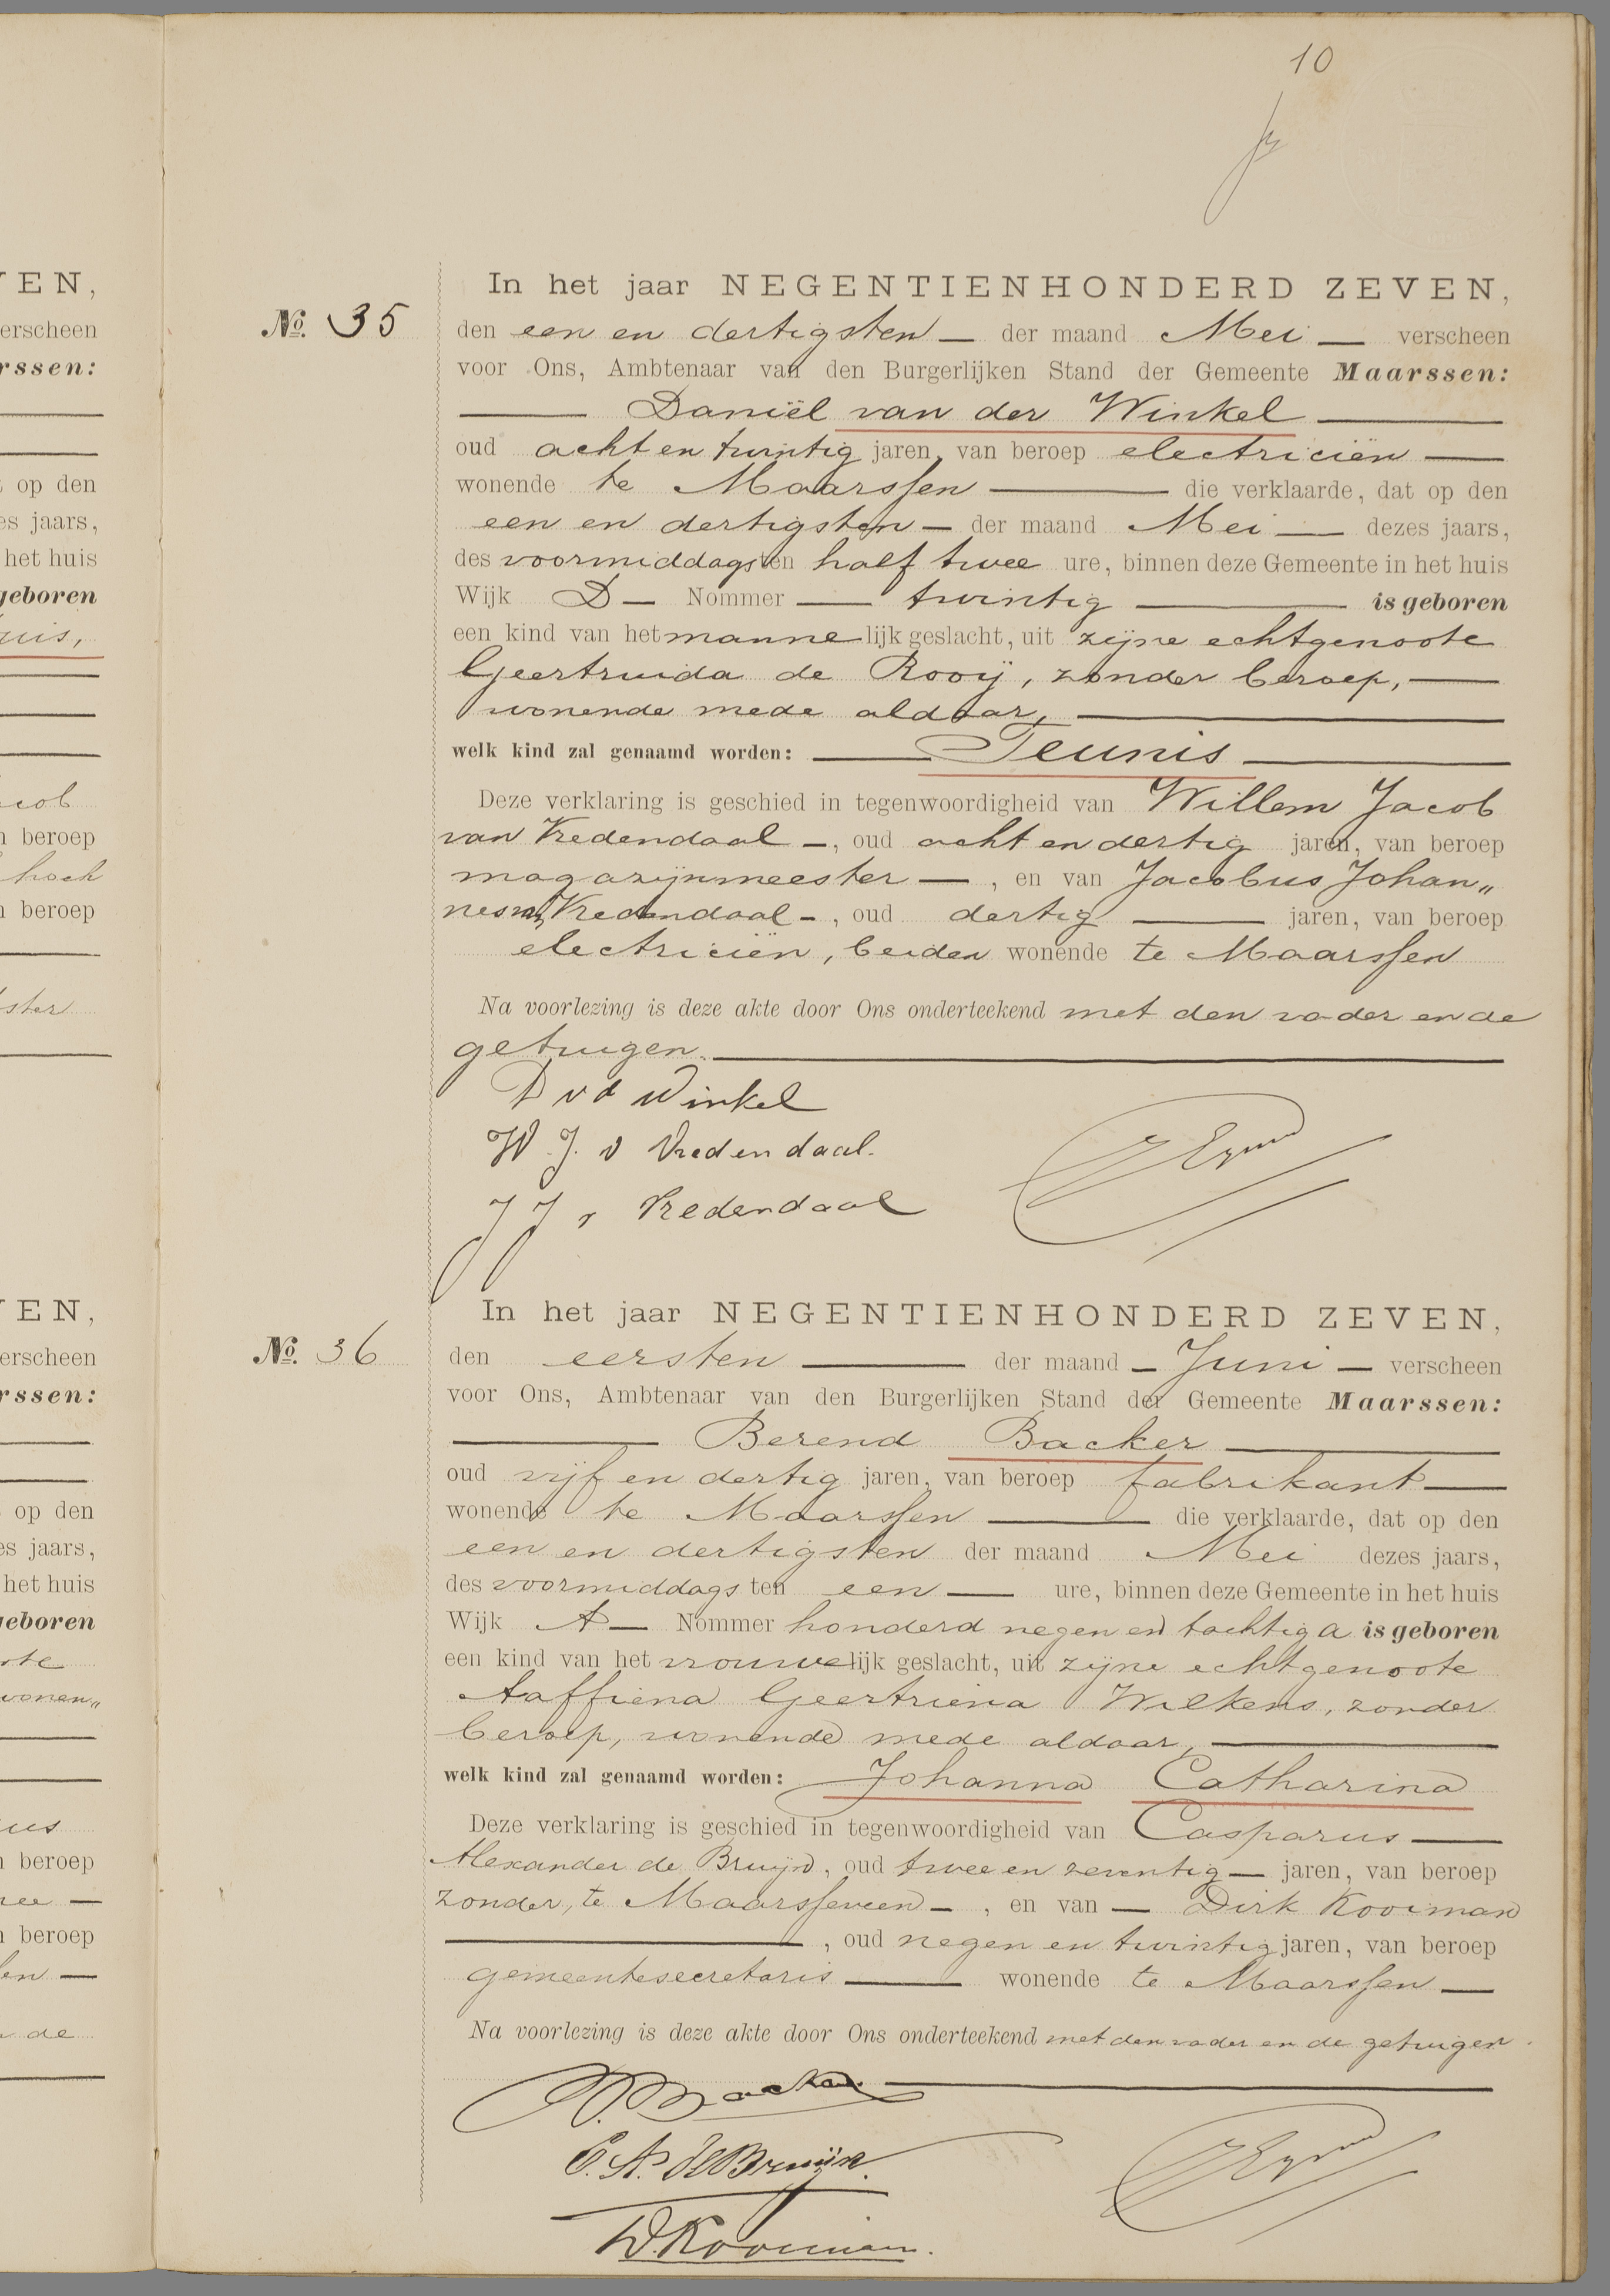 10
VEN,
erscheen
rssen:
op den
es jaars,
het huis
geboren
uis,
cob
n beroep
hoek
n beroep
ster
VEN,
erscheen
rssen:
op den
es jaars,
het huis
geboren
ote
wonen„
ius
n beroep
ree —
n beroep
en —
n de
In het jaar NEGENTIENHONDERD ZEVEN,
No. 35 den een en dertigsten — der maand Mei — verscheen
voor Ons, Ambtenaar van den Burgerlijken Stand der Gemeente Maarssen:
— Daniël van der Winkel —
oud acht en twintig jaren, van beroep electriciën —
wonende te Maarssen — die verklaarde, dat op den
een en dertigsten — der maand Mei — dezes jaars,
des voormiddags ten half twee ure, binnen deze Gemeente in het huis
Wijk D — Nommer — twintig — is geboren
een kind van het mannelijk geslacht, uit zijne echtgenoote
Geertruida de Rooij, zonder beroep, —
wonende mede aldaar, —
welk kind zal genaamd worden: — Teunis —
Deze verklaring is geschied in tegenwoordigheid van Willem Jacob
van Vredendaal —, oud acht en dertig jaren, van beroep
magazijnmeester — , en van Jacobus Johan„
nes van Vredendaal —, oud dertig — jaren, van beroep
electriciën, beiden wonende te Maarssen
Na voorlezing is deze akte door Ons onderteekend met den vader en de
getuigen. —
D v d Winkel
W. J. v Vredendaal.
J J v Vredendaal
In het jaar NEGENTIENHONDERD ZEVEN,
No. 36 den eersten — der maand — Juni — verscheen
voor Ons, Ambtenaar van den Burgerlijken Stand der Gemeente Maarssen:
— Berend Backer —
oud vijf en dertig jaren, van beroep fabrikant —
wonende te Maarssen — die verklaarde, dat op den
een en dertigsten der maand Mei dezes jaars,
des voormiddags ten een — ure, binnen deze Gemeente in het huis
Wijk A — Nommer honderd negen en tachtig a is geboren
een kind van het vrouwelijk geslacht, uit zijne echtgenoote
Aaffiena Geertriena Wilkens, zonder
beroep, wonende mede aldaar, —
welk kind zal genaamd worden: Johanna Catharina
Deze verklaring is geschied in tegenwoordigheid van Casparus —
Alexander de Bruijn, oud twee en zeventig — jaren, van beroep
zonder, te Maarsseveen — , en van — Dirk Kooiman
— , oud negen en twintig jaren, van beroep
gemeentesecretaris — wonende te Maarssen —
Na voorlezing is deze akte door Ons onderteekend met den vader en de getuigen.
B. Backer. —
C. A. de Bruijn.
D. Kooiman.